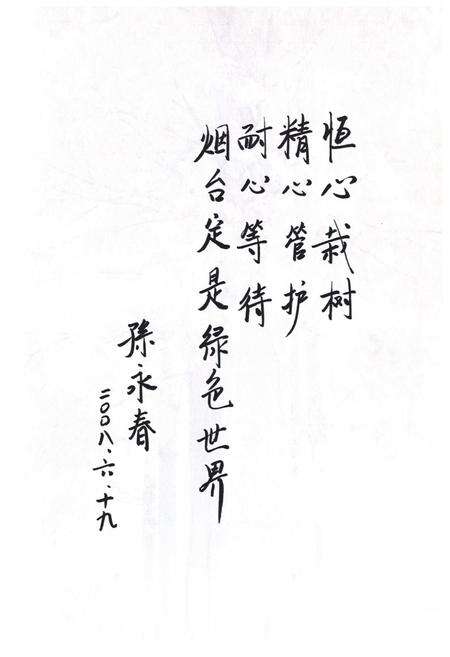 恒心栽树
精心管护
耐心等待
烟台定是绿色世界
孙永春
二〇〇八.六.十九